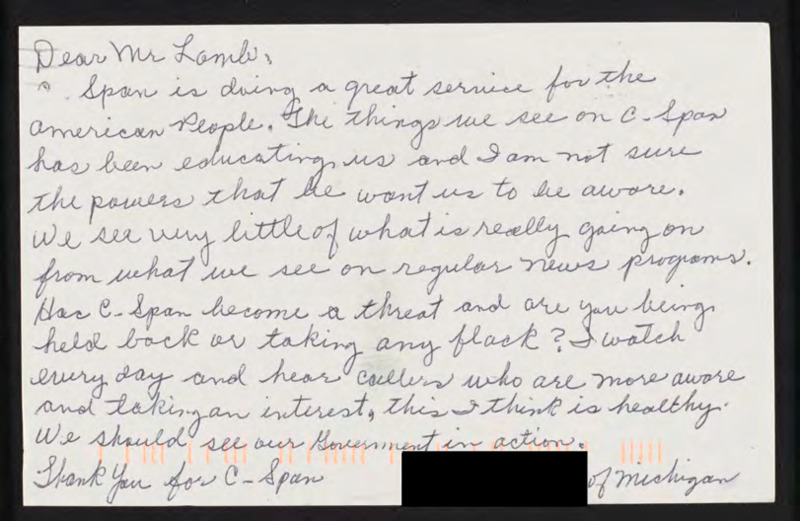 Dear Mr Lamb,
C. Span is doing a great service for the
American People. The things we see on C-Span
has been educating us and I am not sure
the powers that be want us to be aware.
We see very little of what is really going on
from what we see on regular news programs.
Has C-Span become a threat and are you being
held back or taking any flack? I watch
every day and hear callers who are more aware
and taking an interest, this I think is healthy.
We should see our Government in action.
Thank You for C-Span of Michigan